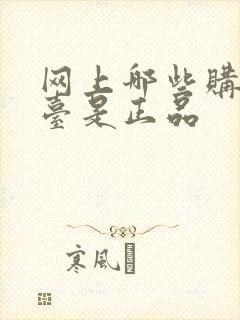 网上哪些購
臺是正品
寒风